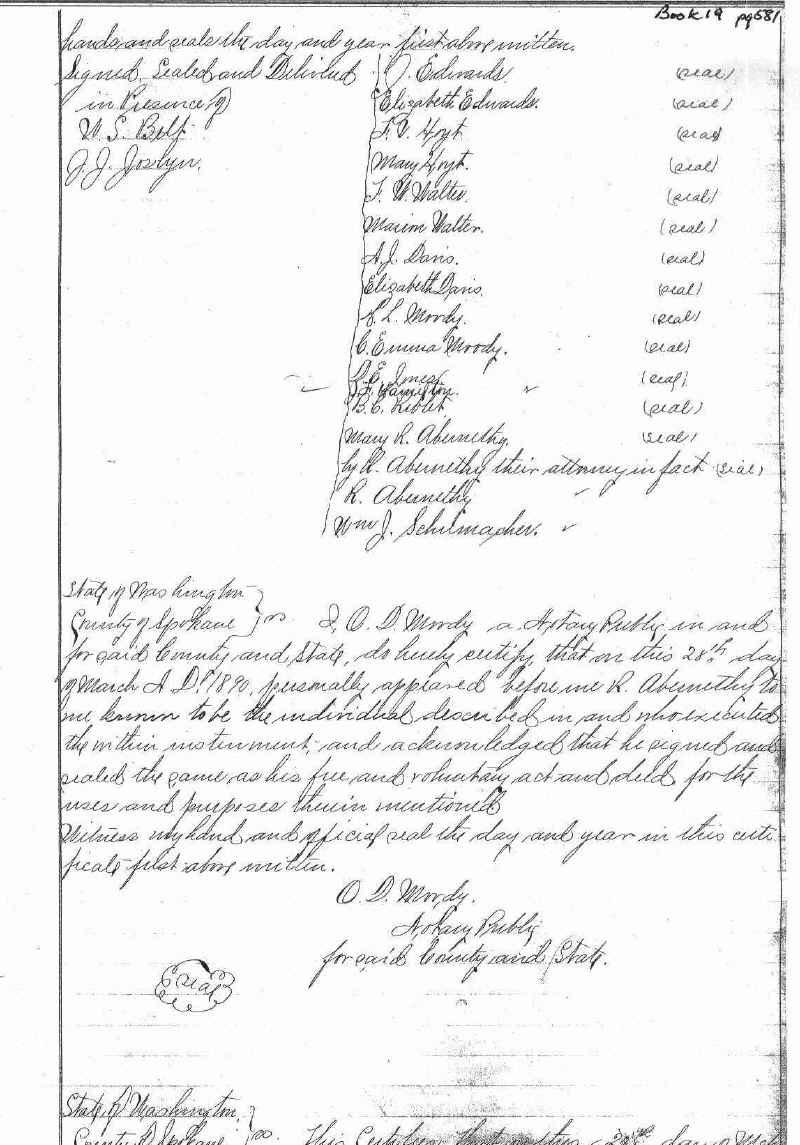 Book 19 pg 581
hands and seals the day and year first above written.
Signed, Sealed and Delivered
in Presence of
W. S. Belf
J. J. Joslyn.
J. Edwards. (seal)
Elizabeth Edwards. (seal)
F. V. Hoyt (seal)
Mary Hoyt. (seal)
F. W. Walter. (seal)
Marion Walter. (seal)
A. J. Davis. (seal)
Elizabeth Davis. (seal)
S. L. Moody. (seal)
C. Emma Moody. (seal)
D. E. Jones (seal)
J. F. Hamilton.
B. C. Riblet. (seal)
Mary R. Abernethy. (seal)
by R. Abernethy their attorney in fact (seal)
R. Abernethy
Wm J. Schumacher.
State of Washington
County of Spokane } ss I, O. D. Moody a Notary Public in and
for said County and State, do hereby certify that on this 28th day
of March A. D. 1890, personally appeared before me R. Abernethy to
me known to be the individual described in and who executed
the within instrument, and acknowledged that he signed and
sealed the same as his free and voluntary act and deed for the
uses and purposes therein mentioned
Witness my hand and official seal the day and year in this certi-
ficate first above written.
O. D. Moody.
Notary Public
for said County and State.
Seal
State of Washington
County of Spokane } ss. This Certifies that on this 28th day of